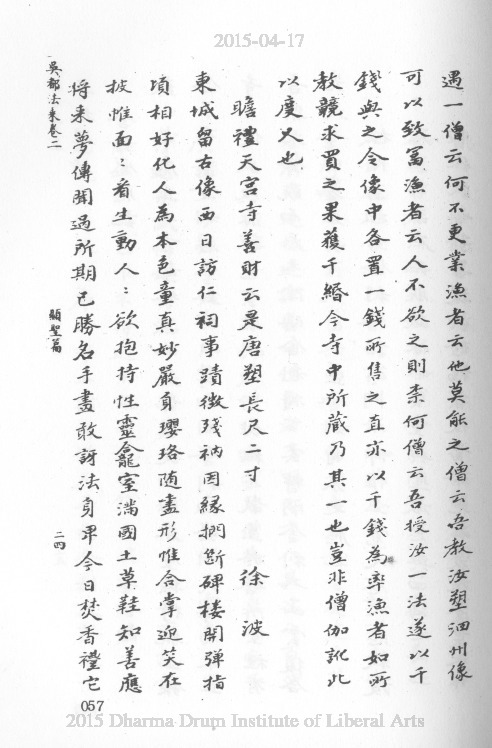 2015-04-17
遇一僧云何不更業漁者云他莫能之僧云吾教汝塑泗州像
可以致冨漁者云人不欲之則柰何僧云吾授汝一法遂以千
錢與之令像中各置一錢所售之直亦以千錢為率漁者如所
教競求買之果獲千緡今寺中所藏乃其一也豈非僧伽訛此
以度人也
瞻禮天宮寺善財云是唐塑長尺二寸 徐波
東城留古像西日訪仁祠事蹟徴殘衲因縁捫斷碑樓開彈指
頃相好化人為本色童真妙嚴身瓔珞随畫形惟合掌迎笑在
披帷面：看生動人：欲抱持性靈龕室滿國土草鞋知善應
将来夢傳聞過所期已勝名手畫敢訝法身卑今日焚香禮它
吳都法乗卷二
顯聖篇
二四
057
2015 Dharma Drum Institute of Liberal Arts